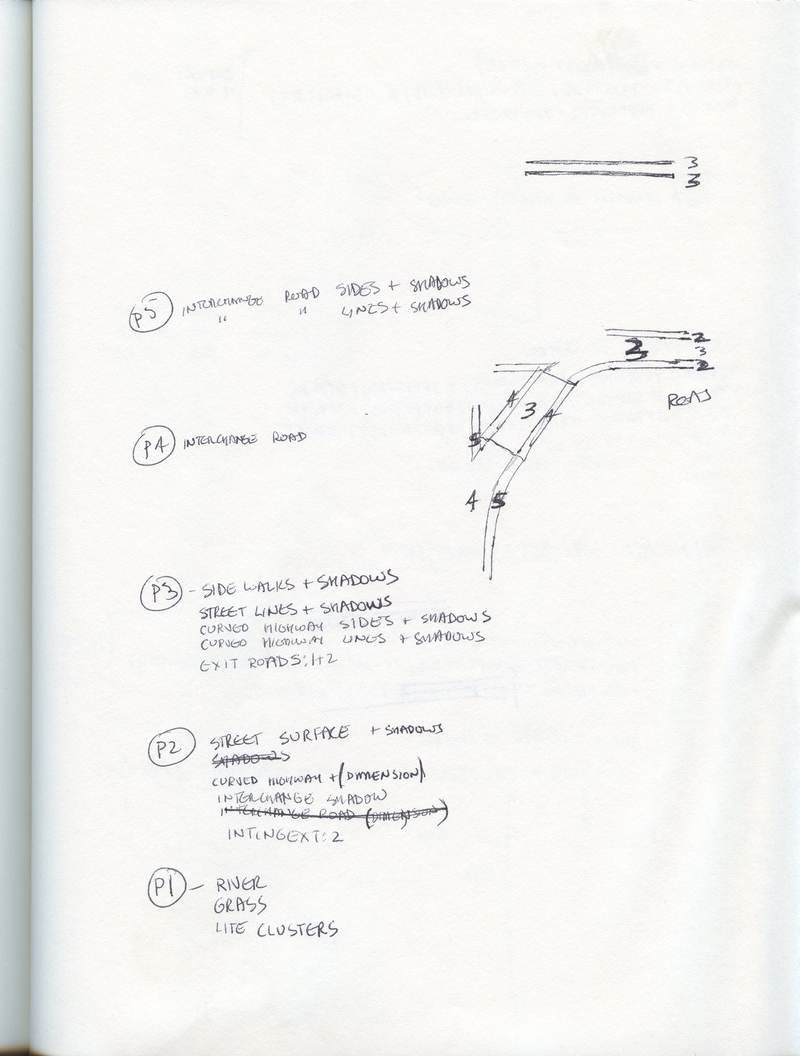 3
3
P5 INTERCHANGE ROAD SIDES + SHADOWS
" " LINES + SHADOWS
2
2 3
2
ROAD
4 3 4
5
P4 INTERCHANGE ROAD
4 5
P3 - SIDE WALKS + SHADOWS
STREET LINES + SHADOWS
CURVED HIGHWAY SIDES + SHADOWS
CURVED HIGHWAY LINES + SHADOWS
EXIT ROADS: 1+2
P2 STREET SURFACE + SHADOWS
SHADOWS
CURVED HIGHWAY + (DIMENSION)
INTERCHANGE SHADOW
INTERCHANGE ROAD (DIMENSION)
INTINGEXT: 2
P1 - RIVER
GRASS
LITE CLUSTERS